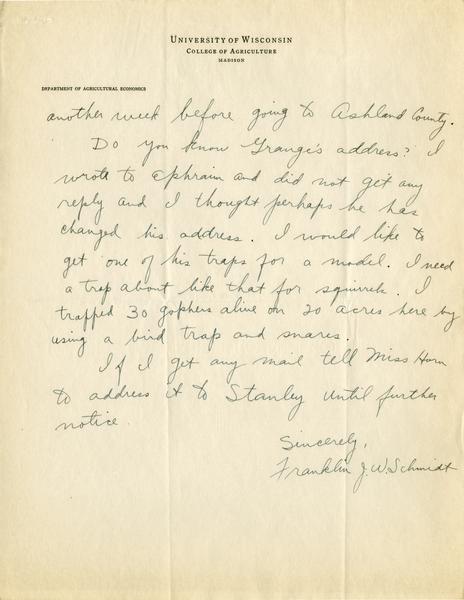 UNIVERSITY OF WISCONSIN
COLLEGE OF AGRICULTURE
MADISON
DEPARTMENT OF AGRICULTURAL ECONOMICS
another week before going to Ashland County.
Do you know Grange's address? I
wrote to Ephraim and did not get any
reply and I thought perhaps he has
changed his address. I would like to
get one of his traps for a model. I need
a trap about like that for squirrels. I
trapped 30 gophers alive on 20 acres here by
using a bird trap and snares.
If I get any mail tell Miss Horn
to address it to Stanley until further
notice.
Sincerely,
Franklin J. W. Schmidt